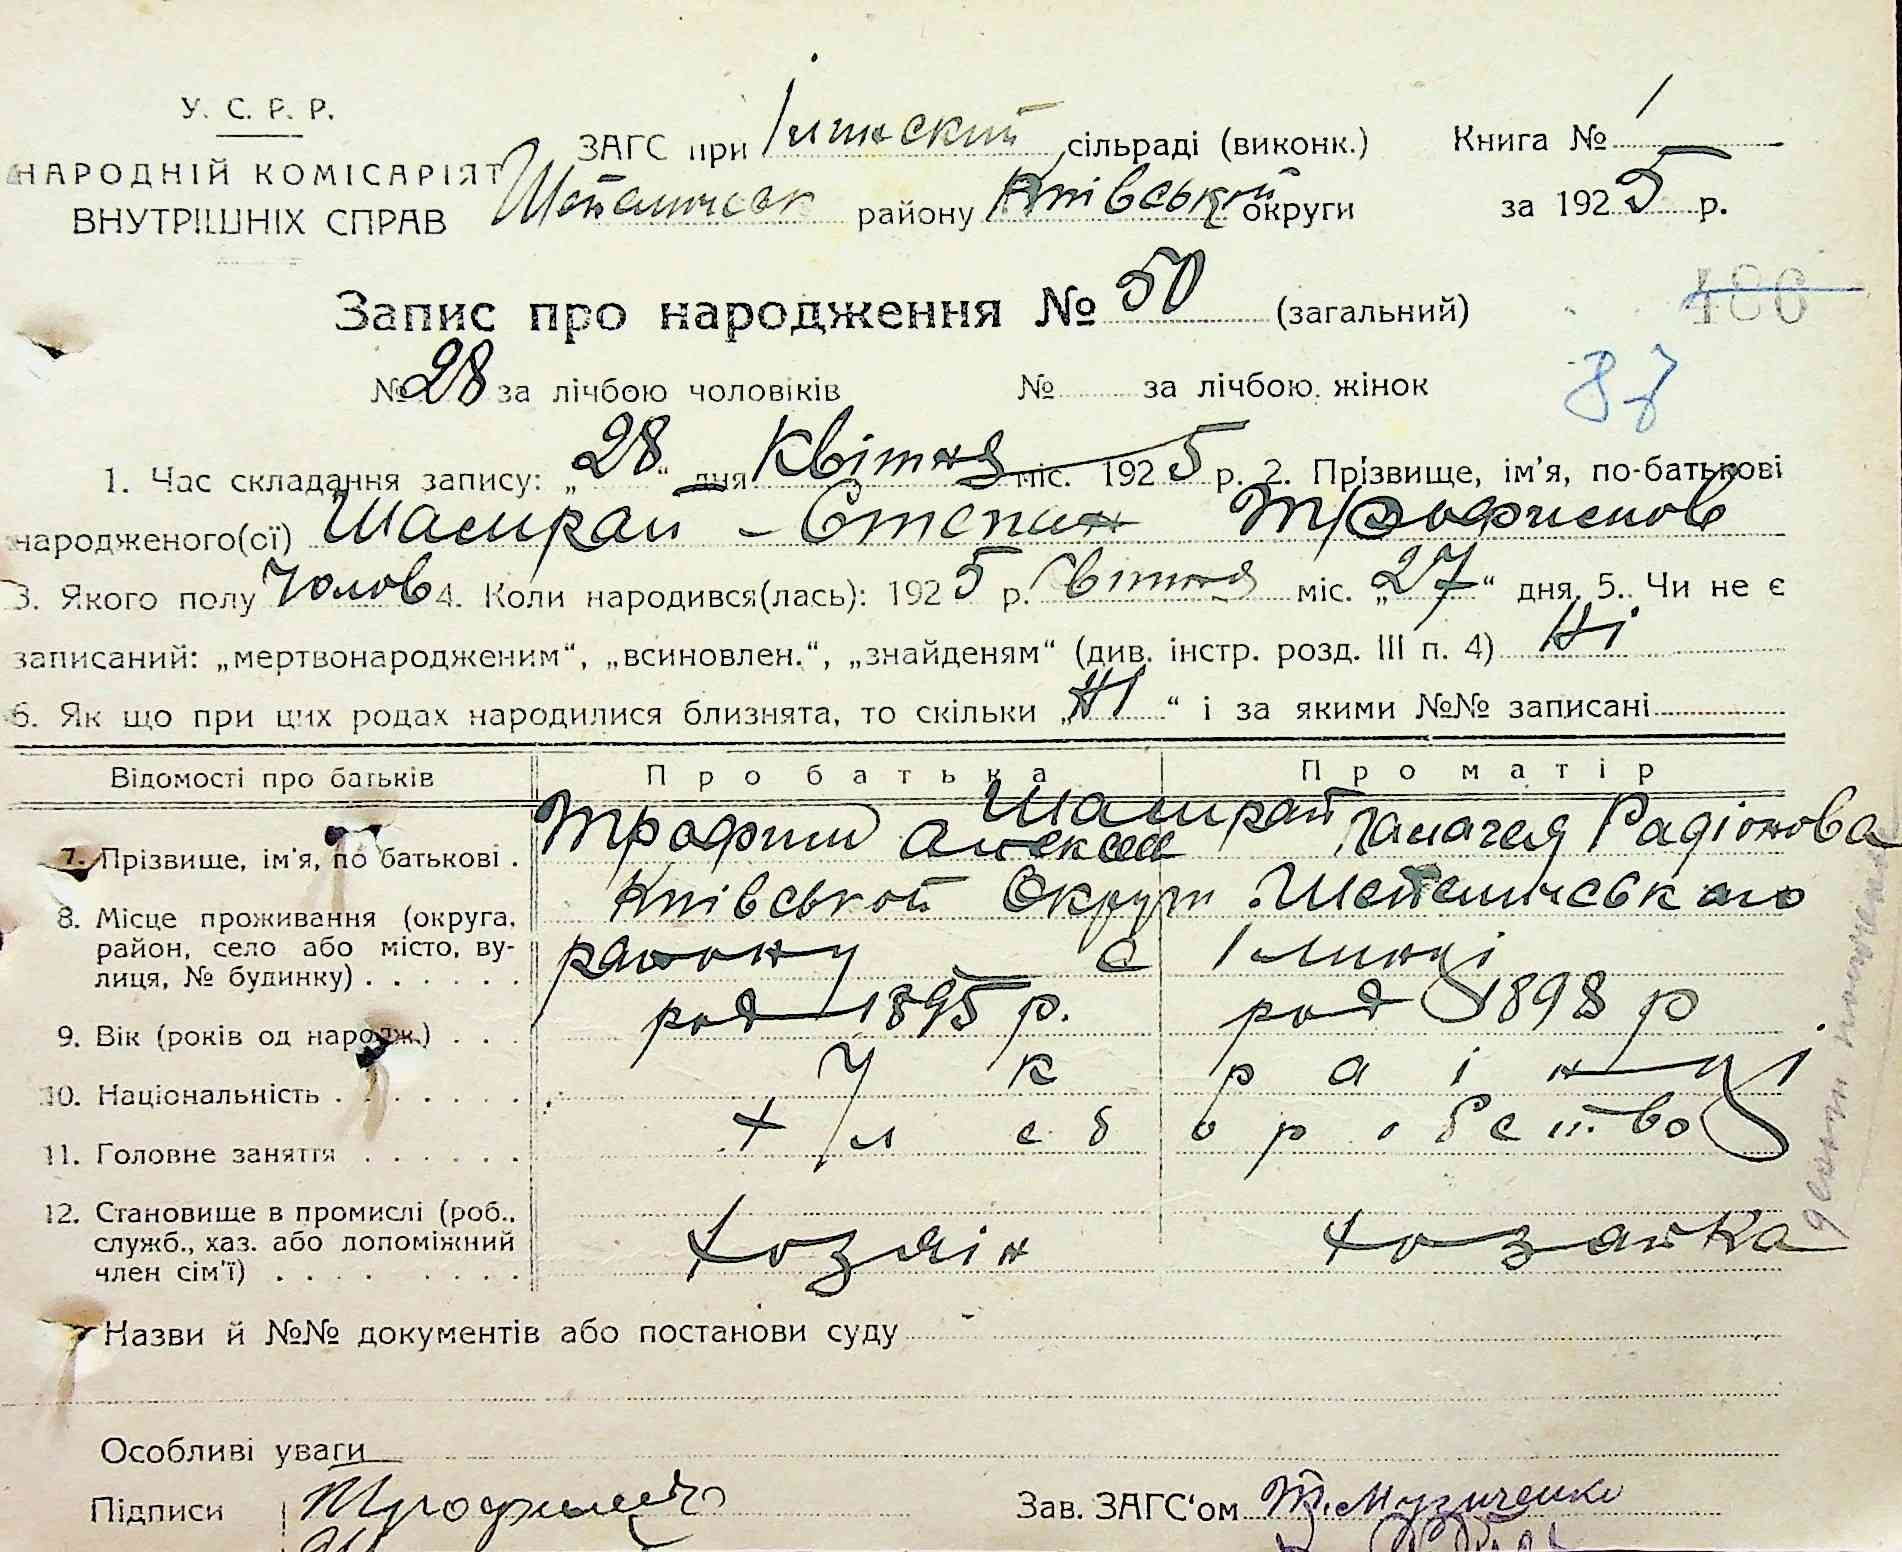 У. С. Р. Р.
НАРОДНІЙ КОМІСАРІЯТ
ВНУТРІШНІХ СПРАВ
ЗАГС при Ілинский сільраді (виконк.) Книга № 1
району Київської округи за 1925 р.
Запис про народження № 50 (загальний)
486
№ 28 за лічбою чоловіків № за лічбою жінок
1. Час складання запису: „28“ дня Квітня міс. 1925 р. 2. Прізвище, ім'я, по-батькові
народженого(ої) Шамрай - Степан Трофимов
3. Якого полу Чолов 4. Коли народився(лась): 1925 р. Квітня міс. „27“ дня. 5. Чи не є
записаний: „мертвонародженим“, „всиновлен.“, „знайденям“ (див. інстр. розд. III п. 4) Ні
6. Як що при цих родах народилися близнята, то скільки „Ні“ і за якими №№ записані
Відомості про батьків Про батька Про матір
Шамрай
7. Прізвище, ім'я, по батькові . Трофим Алексеев Радіонова
8. Місце проживання (округа, Київської Округи
район, село або місто, ву- району с Ілинці
лиця, № будинку) . . . . . .
9. Вік (років од народж.) . . . род 1895 р. род 1898 р
10. Національність . . . . . . . Українці
11. Головне заняття . . . . . . Хлеборобство
12. Становище в промислі (роб.,
служб., хаз. або допоміжний Хозяін Хозайка
член сім'ї) . . . . . . . . .
Назви й №№ документів або постанови суду
Особливі уваги
Підписи Зав. ЗАГС'ом Т. Музиченко